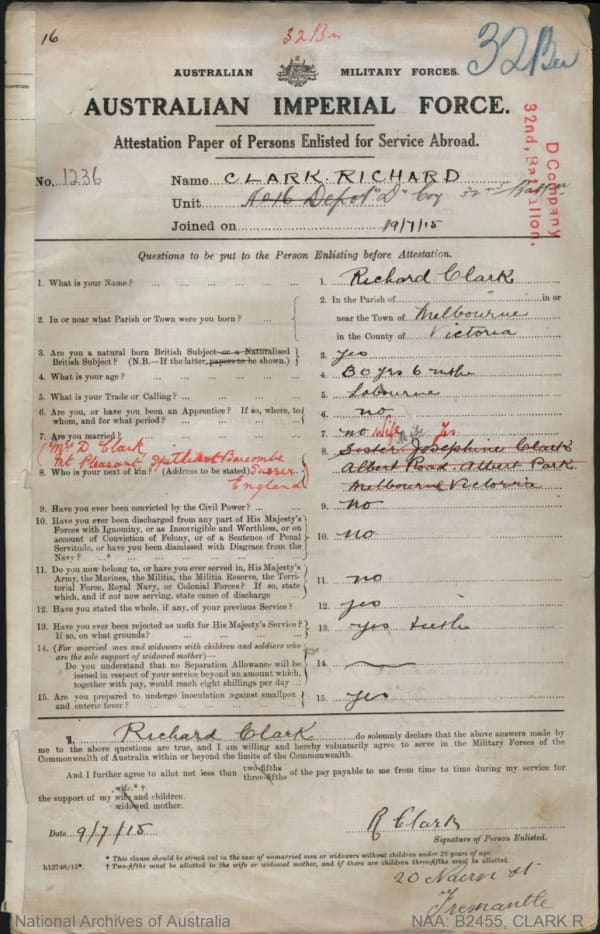 16
32Bn
32Bn
AUSTRALIAN MILITARY FORCES.
AUSTRALIAN IMPERIAL FORCE.
Attestation Paper of Persons Enlisted for Service Abroad.
D Company
32nd, Battalion.
No. 1236 Name CLARK. RICHARD
Unit No 16 Depot "D" Coy 32nd Battn
Joined on 19/7/15
Questions to be put to the Person Enlisting before Attestation.
1. What is your Name? ... 1. Richard Clark
2. In or near what Parish or Town were you born? ... 2. In the Parish of in or
near the Town of Melbourne
in the County of Victoria
3. Are you a natural born British Subject or a Naturalised
British Subject? (N.B.—If the latter, papers to be shown.) 3. Yes
4. What is your age? ... 4. 30 yrs 6 mths
5. What is your Trade or Calling? ... 5. Labourer
6. Are you, or have you been an Apprentice? If so, where, to
whom, and for what period? ... 6. no
7. Are you married? ... 7. no Wife Yes
(Mrs D. Clark
Mt Pleasant Barcombe
Sussex
England)
8. Who is your next of kin? (Address to be stated) 8. Sister Josephine Clark
Albert Road Albert Park
Melbourne Victoria
9. Have you ever been convicted by the Civil Power? ... 9. no
10. Have you ever been discharged from any part of His Majesty's
Forces with Ignominy, or as Incorrigible and Worthless, or on
account of Conviction of Felony, or of a Sentence of Penal
Servitude, or have you been Dismissed with Disgrace from the
Navy? ... 10. no
11. Do you now belong to, or have you ever served in, His Majesty's
Army, the Marines, the Militia, the Militia Reserve, the Terri-
torial Force, Royal Navy, or Colonial Forces? If so, state
which, and if not now serving, state cause of discharge 11. no
12. Have you stated the whole, if any, of your previous Service? 12. yes
13. Have you ever been rejected as unfit for His Majesty's Service?
If so, on what grounds? ... 13. yes teeth
14. (For married men and widowers with children and soldiers who
are the sole support of widowed mother)—
Do you understand that no Separation Allowance will be
issued in respect of your service beyond an amount which,
together with pay, would reach eight shillings per day ... 14.
15. Are you prepared to undergo inoculation against smallpox
and enteric fever? ... 15. yes
I, Richard Clark do solemnly declare that the above answers made by
me to the above questions are true, and I am willing and hereby voluntarily agree to serve in the Military Forces of the
Commonwealth of Australia within or beyond the limits of the Commonwealth.
And I further agree to allot not less than two-fifths three-fifths of the pay payable to me from time to time during my service for
the support of my wife.* † wife and children. widowed mother.
Date 9/7/15 R Clark
Signature of Person Enlisted.
* This clause should be struck out in the case of unmarried men or widowers without children under 18 years of age.
h12748/15* † Two-fifths must be allotted to the wife or widowed mother, and if there are children three-fifths must be allotted.
20 Nairn St
Fremantle
National Archives of Australia NAA: B2455, CLARK R